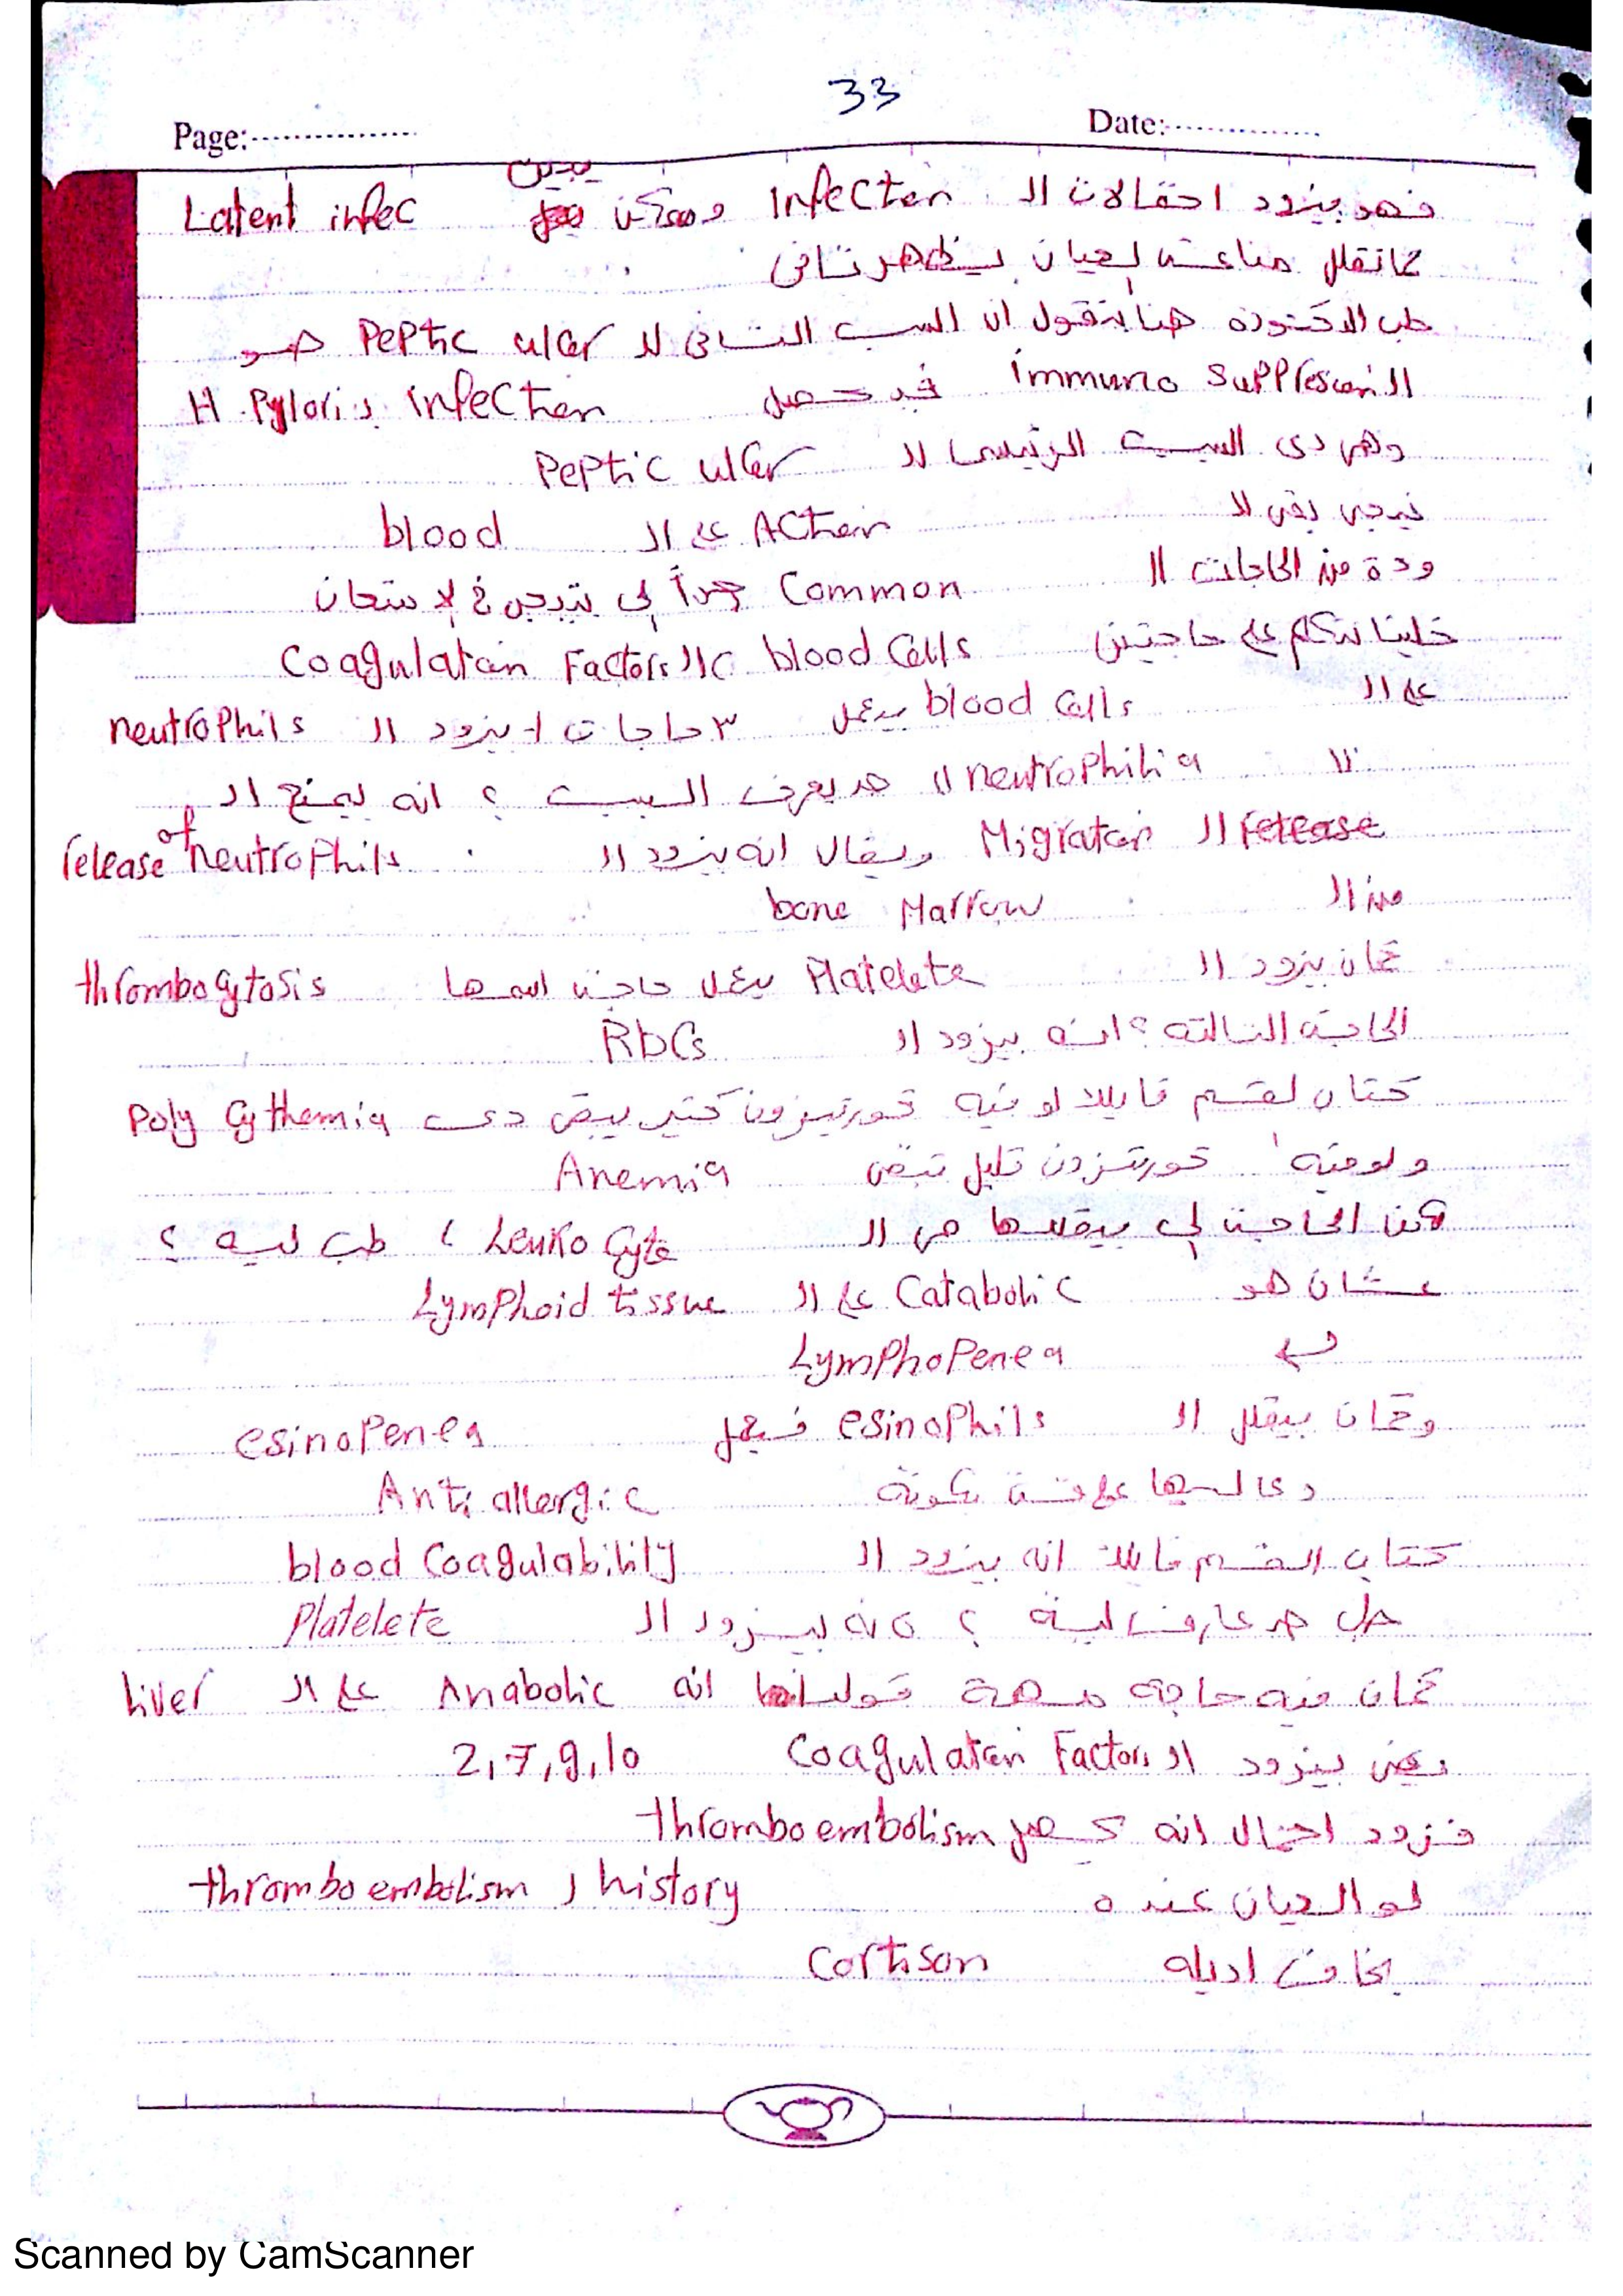 33
Page:................ Date:................
فهو بيزود احتمالات ال Infection وممكن يبين Latent infec
لما تقلل مناعته لعيان يظهر تانى
طب الدكتورة هنا بتقول ان السبب التانى لل Peptic ulcer هو
ال immuno suppression فيحصل H.Pylori infection
وهى دى السبب الرئيسى لل Peptic ulcer
نيجى بقى لل Action على ال blood
ودة من الحاجات ال Common جداً لى بتيجى فى لإمتحان
خلينا نتكلم على حاجتين blood Cells وال Coagulation Factors
على ال blood Cells بيعمل ٣ حاجات ١- بيزود ال neutrophils
ال neutrophilia حد يعرف السبب ؟ انه بيمنع ال
Migration ويقال انه بيزود ال release of neutrophils
من ال bone Marrow
كمان بيزود ال Platelete بيعمل حاجة اسمها thrombocytosis
الحاجة التالتة ؟ انه بيزود ال RbCs
كتاب لقسم قايلك لو فيه كورتيزون كتير يبقى دى Poly Cythemia
ولو فيه كورتيزون قليل تبقى Anemia
لكن الحاجة لى بيقللها هى ال Leuko Cyte ، طب ليه ؟
عشان هو Catabolic على ال Lymphoid tissue
Lymphopenea
وكمان بيقلل ال esinophils فيعمل esinopenea
دى ليها علاقة بكونه Anti allergic
كتاب القسم قايلك انه بيزود ال blood Coagulability
حد عارف ليه ؟ لانه بيزود ال Platelete
كمان فيه حاجة مهمة قولناها انه Anabolic على ال liver
يعنى بيزود ال Coagulation Factors 2,7,9,10
فزود احتمال انه يحصل thromboembolism
لو العيان عنده history ل thromboembolism
بخاف اديله Cortison
Scanned by CamScanner